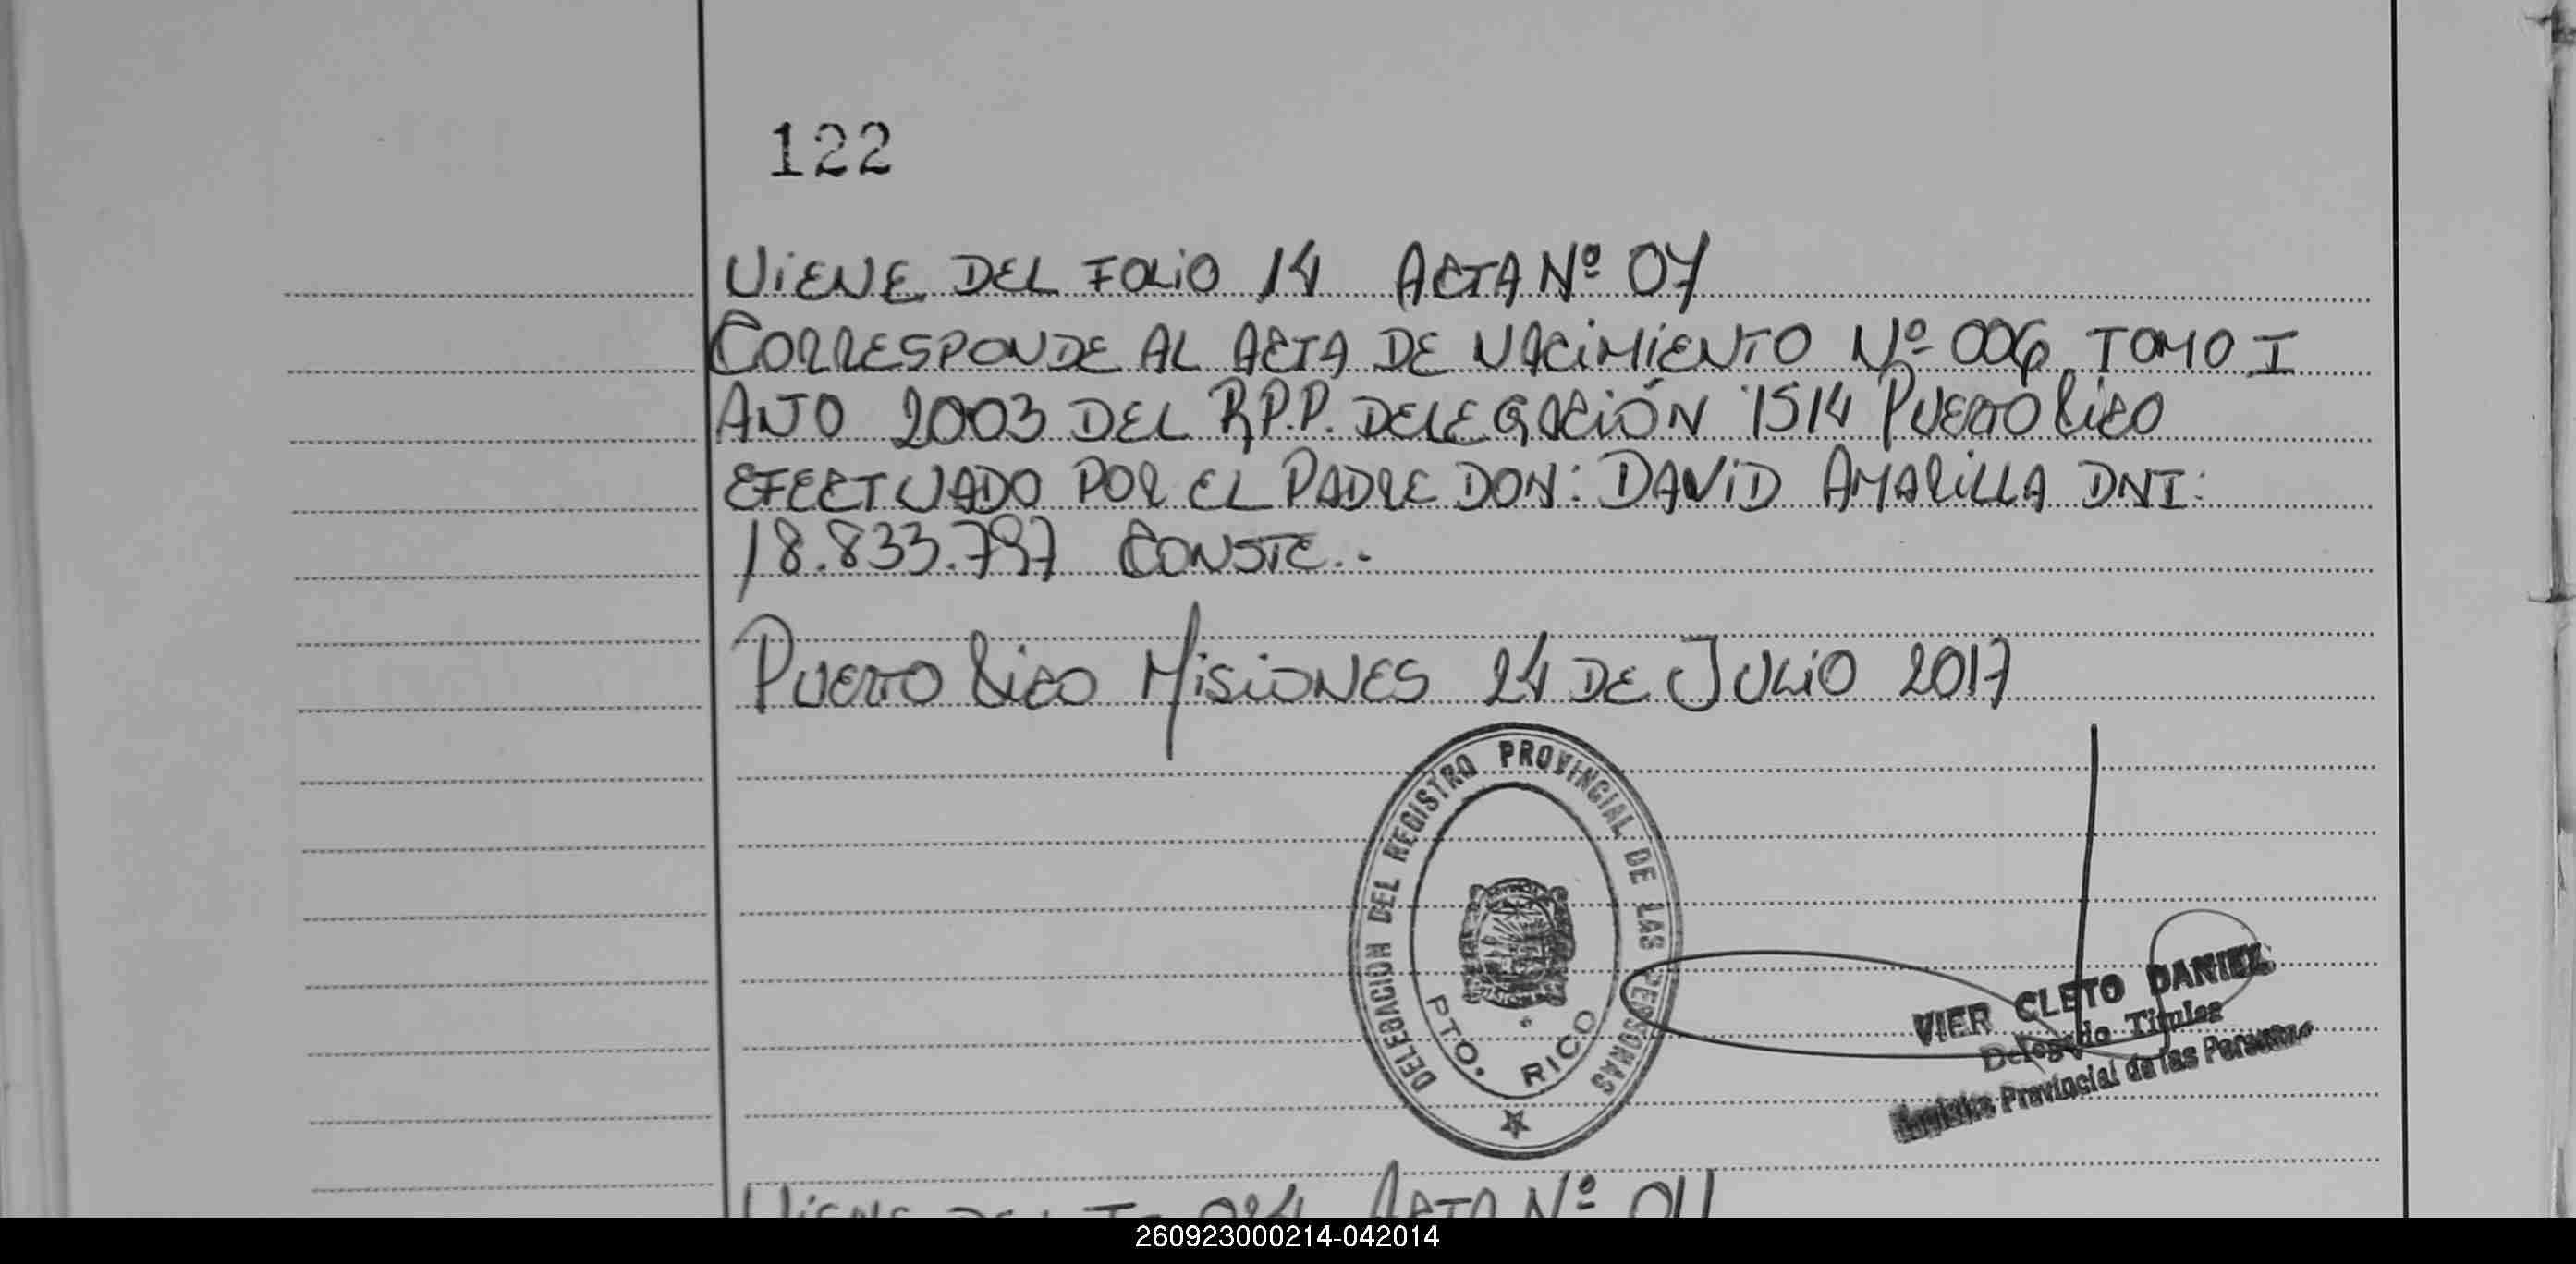 122
VIENE DEL FOLIO 14 ACTA Nº 07
CORRESPONDE AL ACTA DE NACIMIENTO Nº 006 TOMO I
AÑO 2003 DEL R.P.P. DELEGACIÓN 1514 PUERTO RICO
EFECTUADO POR EL PADRE DON: DAVID AMARILLA DNI:
18.833.797 CONSTE..
PUERTO RICO MISIONES 24 DE JULIO 2017
DELEGACION DEL REGISTRO PROVINCIAL DE LAS PERSONAS
PTO. RICO
VIER CLETO DANIEL
Delegado Titular
Registro Provincial de las Personas
VIENE DEL Fº 084 ACTA Nº 011
260923000214-042014